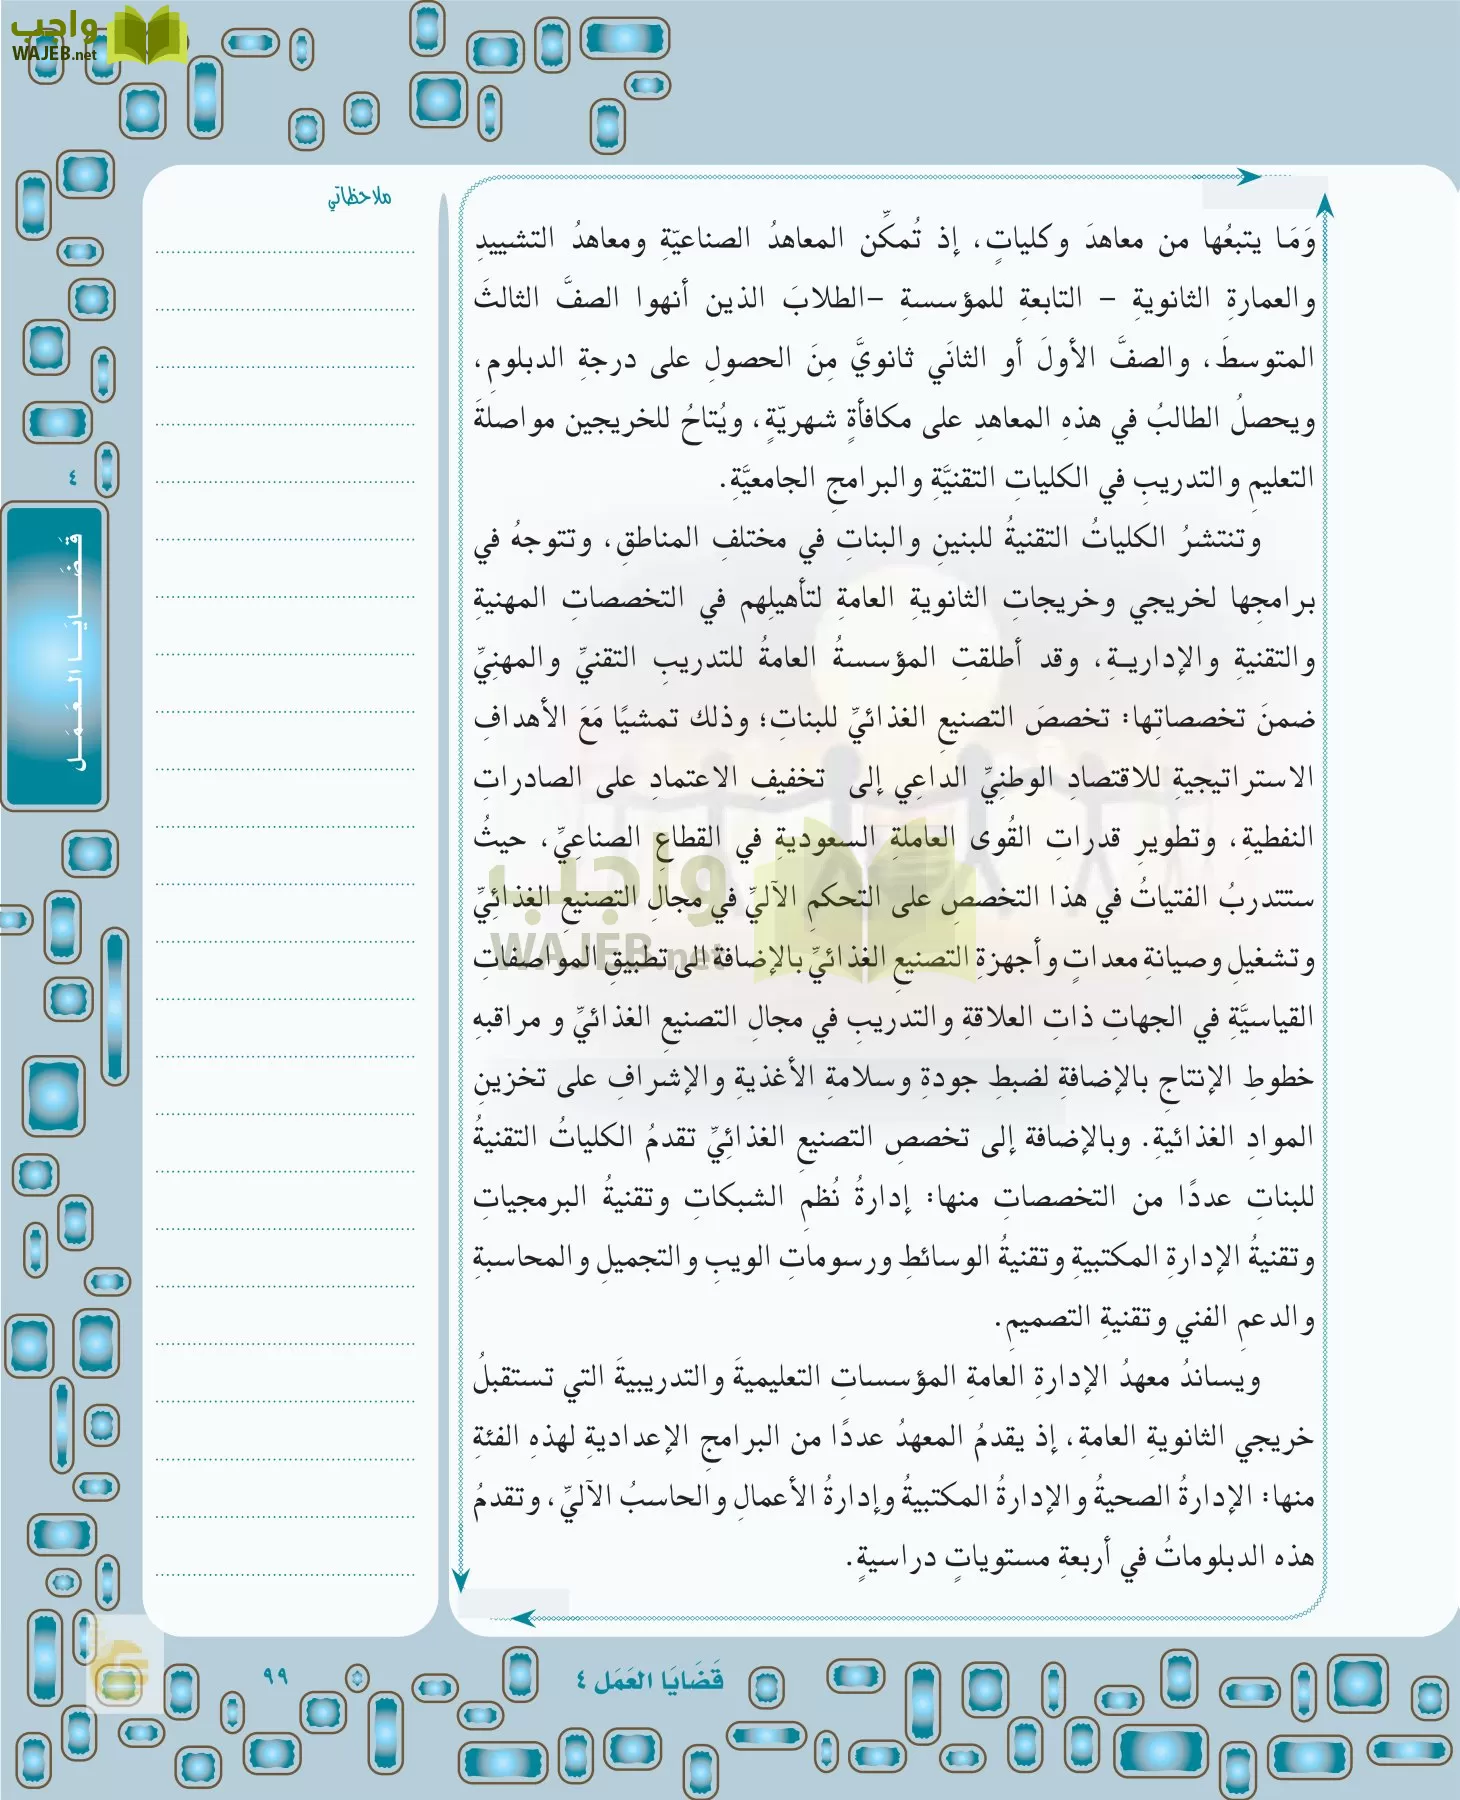 واجب
WAJEB.net
ملاحظاتي
وَمَا يتبعُها من معاهدَ وكلياتٍ، إذ تُمكِّن المعاهدُ الصناعيّةِ ومعاهدُ التشييدِ
والعمارةِ الثانويةِ - التابعةِ للمؤسسةِ -الطلابَ الذين أنهوا الصفَّ الثالثَ
المتوسطَ، والصفَّ الأولَ أو الثانَي ثانويَّ مِنَ الحصولِ على درجةِ الدبلومِ،
ويحصلُ الطالبُ في هذهِ المعاهدِ على مكافأةٍ شهريّةٍ، ويُتاحُ للخريجين مواصلةَ
التعليمِ والتدريبِ في الكلياتِ التقنيَّةِ والبرامجِ الجامعيَّةِ.
وتنتشرُ الكلياتُ التقنيةُ للبنينِ والبناتِ في مختلفِ المناطقِ، وتتوجهُ في
برامجِها لخريجي وخريجاتِ الثانويةِ العامةِ لتأهيلِهم في التخصصاتِ المهنيةِ
والتقنيةِ والإداريـةِ، وقد أطلقتِ المؤسسةُ العامةُ للتدريبِ التقنيِّ والمهنِيِّ
ضمنَ تخصصاتِها: تخصصَ التصنيعِ الغذائيِّ للبناتِ؛ وذلك تمشيًا مَعَ الأهدافِ
الاستراتيجيةِ للاقتصادِ الوطنِيِّ الداعِي إلى تخفيفِ الاعتمادِ على الصادراتِ
النفطيةِ، وتطويرِ قدراتِ القُوى العاملةِ السعوديةِ في القطاعِ الصناعِيِّ، حيثُ
ستتدربُ الفتياتُ في هذا التخصصِ على التحكمِ الآليِّ في مجالِ التصنيعِ الغذائِيِّ
وتشغيلِ وصيانةِ معداتٍ وأجهزةِ التصنيعِ الغذائيِّ بالإضافة الى تطبيقِ المواصفاتِ
القياسيَّةِ في الجهاتِ ذاتِ العلاقةِ والتدريبِ في مجالِ التصنيعِ الغذائيِّ و مراقبهِ
خطوطِ الإنتاجِ بالإضافةِ لضبطِ جودةِ وسلامةِ الأغذيةِ والإشرافِ على تخزينِ
الموادِ الغذائيةِ. وبالإضافة إلى تخصصِ التصنيعِ الغذائِيِّ تقدمُ الكلياتُ التقنيةُ
للبناتِ عددًا من التخصصاتِ منها: إدارةُ نُظمِ الشبكاتِ وتقنيةُ البرمجياتِ
وتقنيةُ الإدارةِ المكتبيةِ وتقنيةُ الوسائطِ ورسوماتِ الويبِ والتجميلِ والمحاسبةِ
والدعمِ الفني وتقنيةِ التصميمِ.
ويساندُ معهدُ الإدارةِ العامةِ المؤسساتِ التعليميةَ والتدريبيةَ التي تستقبلُ
خريجي الثانويةِ العامةِ، إذ يقدمُ المعهدُ عددًا من البرامجِ الإعداديةِ لهذهِ الفئةِ
منها: الإدارةُ الصحيةُ والإدارةُ المكتبيةُ وإدارةُ الأعمالِ والحاسبُ الآليِّ، وتقدمُ
هذه الدبلوماتُ في أربعةِ مستوياتٍ دراسيةٍ.
٤
قَـضَـايَـا الـعَـمَـل
واجب
WAJEB.net
قَضَايَا العَمَل ٤
٩٩